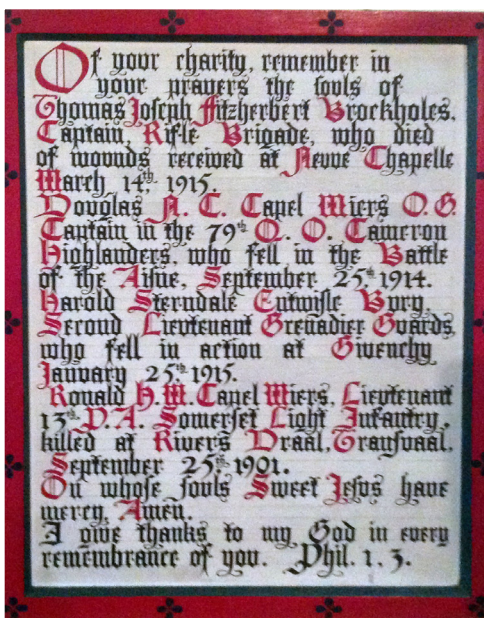 Of your charity, remember in
your prayers the souls of
Thomas Joseph Fitzherbert Brockholes,
Captain, Rifle Brigade, who died
of wounds received at Neuve Chapelle
March 14th 1915.
Douglas N. C. Capel Miers O.G.
Captain in the 79th Q. O. Cameron
Highlanders, who fell in the Battle
of the Aisne, September 25th 1914.
Harold Sterndale Entwisle Bury,
Second Lieutenant Grenadier Guards
who fell in action at Givenchy
January 25th 1915.
Ronald H. M. Capel Miers, Lieutenant
13th P. A. Somerset Light Infantry,
killed at River's Draai, Transvaal,
September 25th 1901.
On whose souls Sweet Jesus have
mercy, Amen.
I give thanks to my God in every
remembrance of you. Phil. 1. 3.